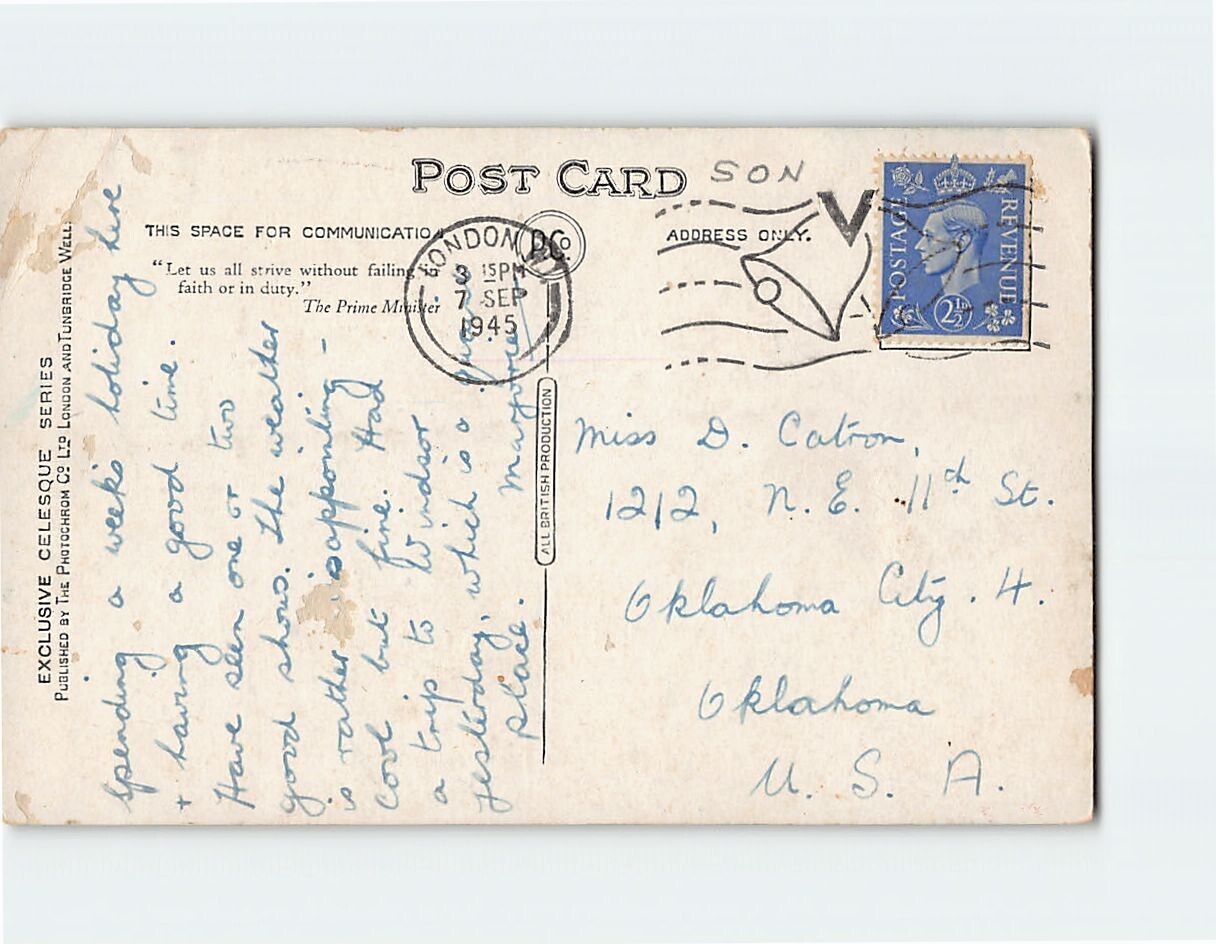 POST CARD
SON
THIS SPACE FOR COMMUNICATIO
ADDRESS ONLY.
"Let us all strive without failing in
faith or in duty."
The Prime Minister
P.Co.
LONDON
3 15PM
7 SEP
1945
V
POSTAGE
REVENUE
2½D
EXCLUSIVE CELESQUE SERIES
PUBLISHED BY THE PHOTOCHROM CO. LTD LONDON AND TUNBRIDGE WELL
ALL BRITISH PRODUCTION
Spending a weeks holiday here
+ having a good time.
Have seen one or two
good shows. The weather
is rather disappointing -
cool but fine. Had
a trip to Windsor
yesterday, which is a
place. Marjorie
Miss D. Catron,
1212, N. E. 11th St.
Oklahoma City. 4.
Oklahoma
U. S. A.